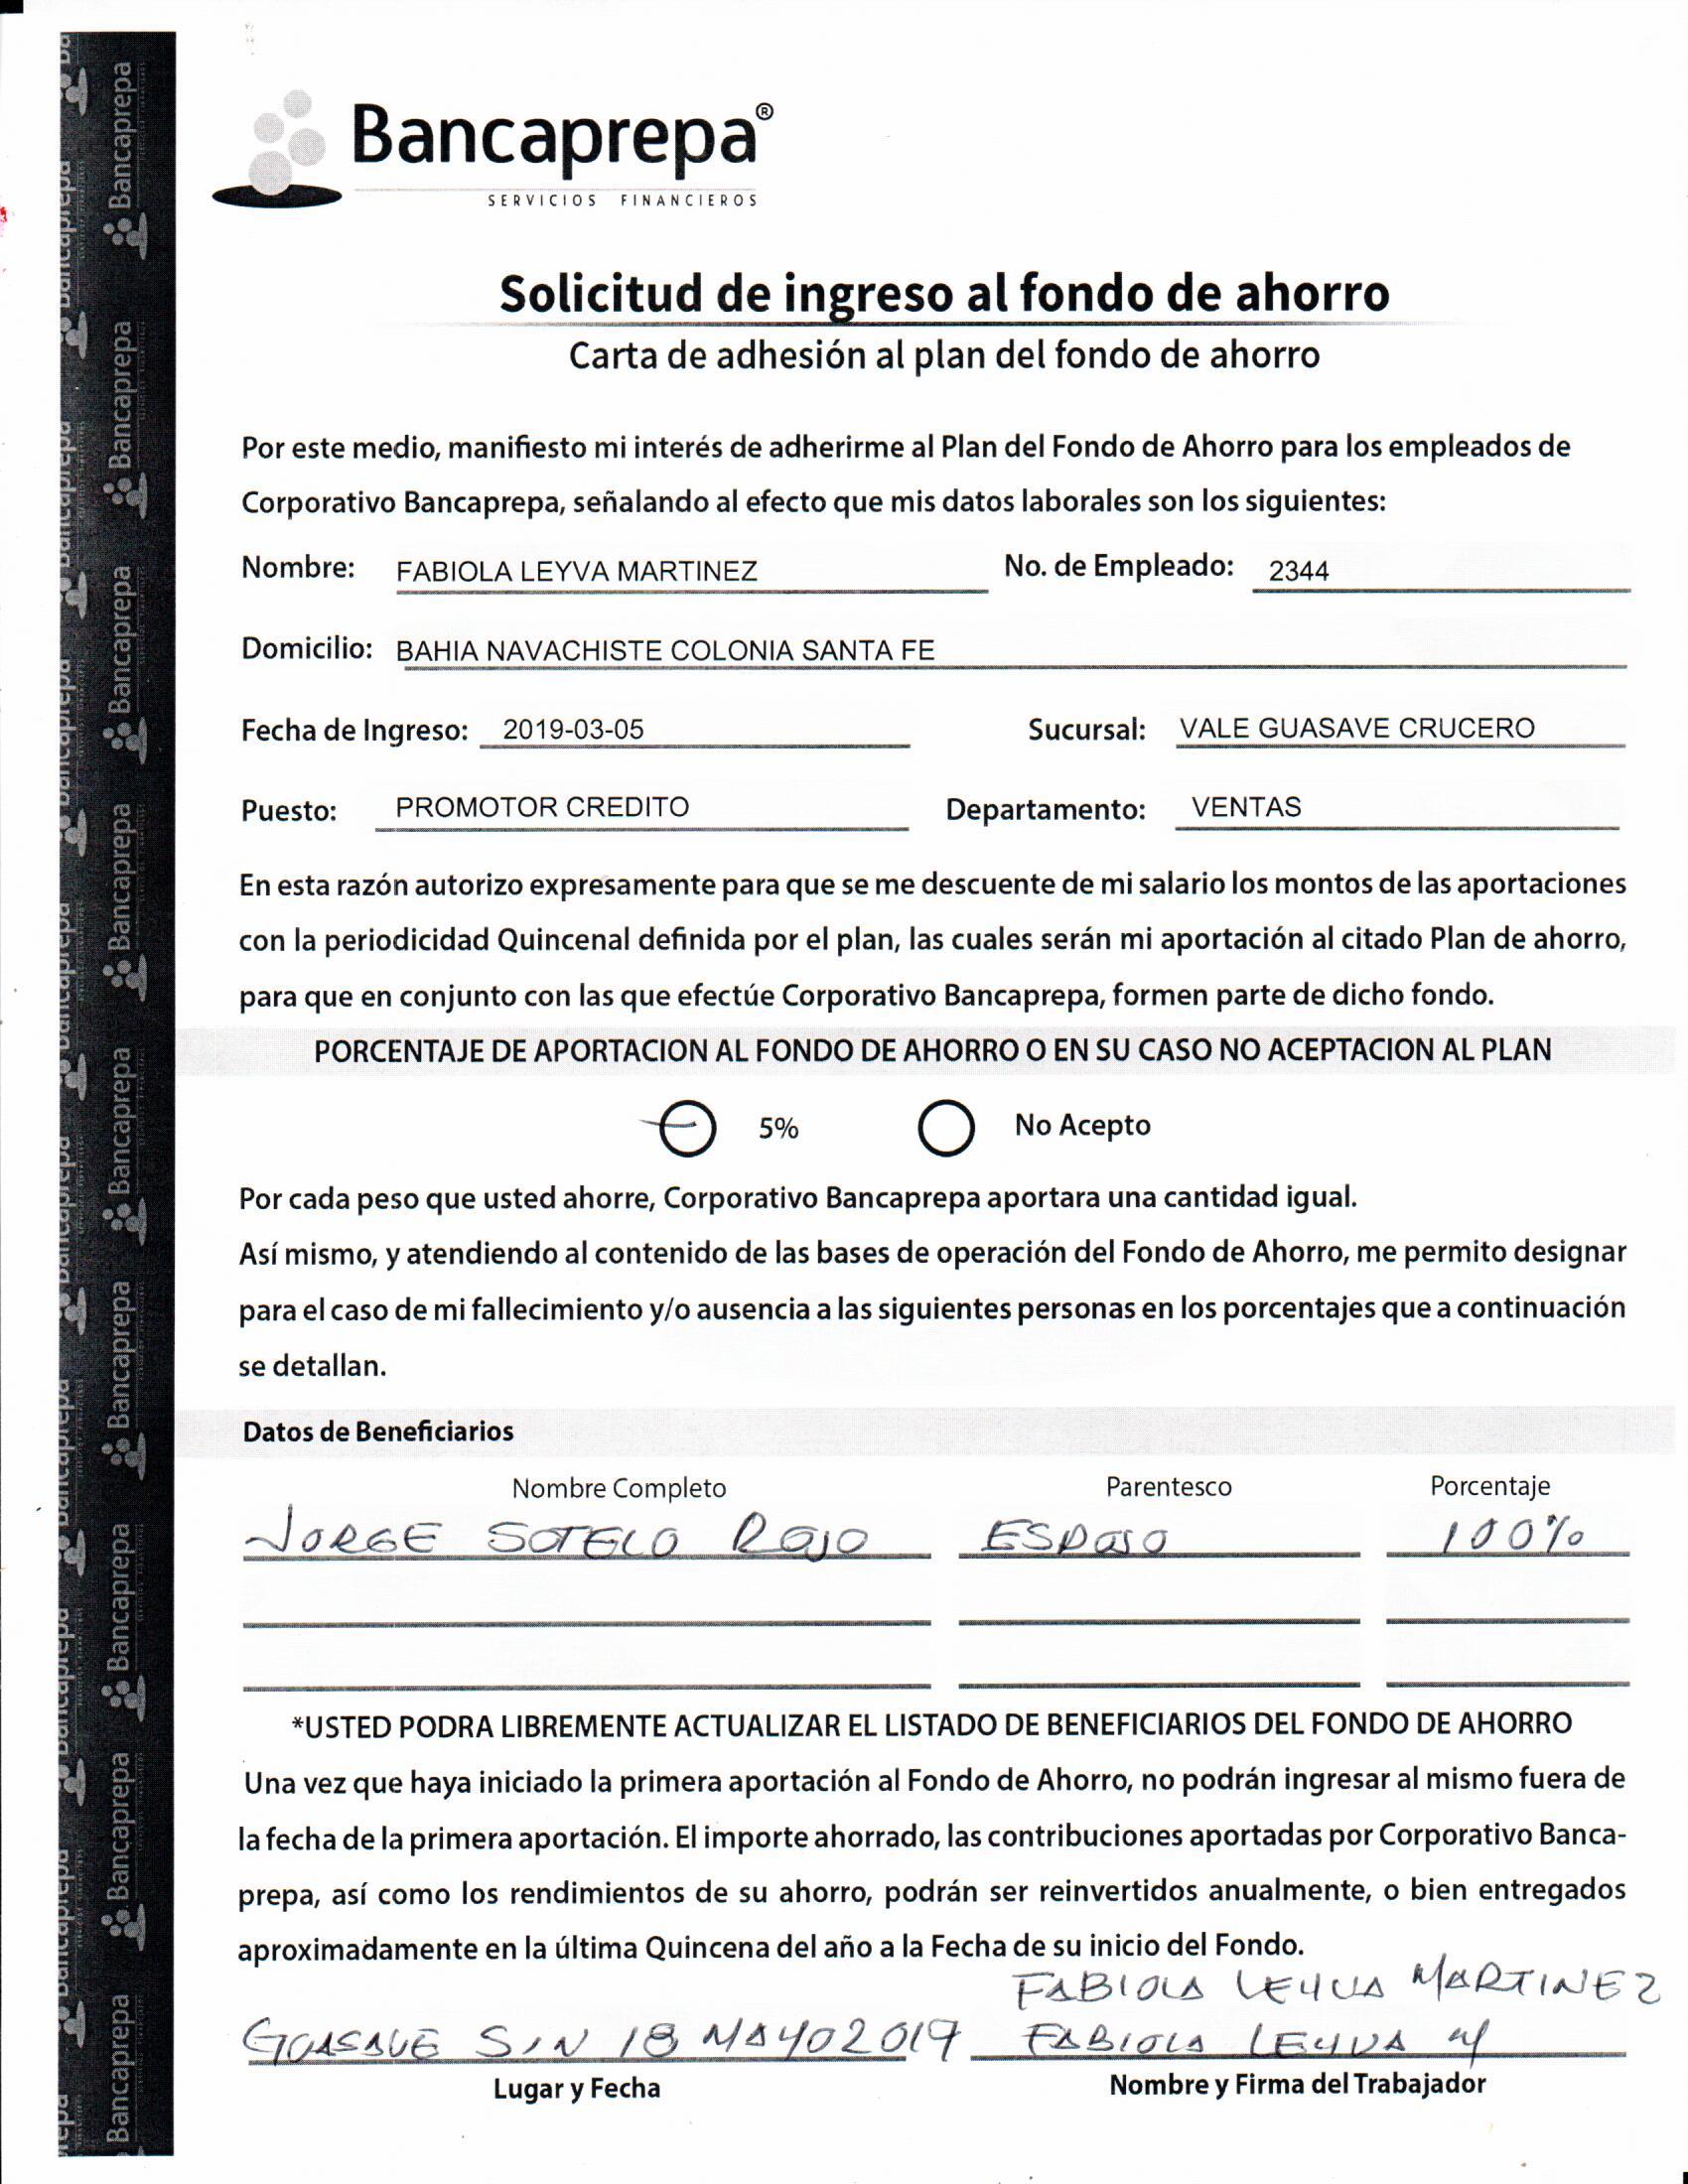 Bancaprepa®
SERVICIOS FINANCIEROS
Solicitud de ingreso al fondo de ahorro
Carta de adhesión al plan del fondo de ahorro
Por este medio, manifiesto mi interés de adherirme al Plan del Fondo de Ahorro para los empleados de
Corporativo Bancaprepa, señalando al efecto que mis datos laborales son los siguientes:
Nombre: FABIOLA LEYVA MARTINEZ No. de Empleado: 2344
Domicilio: BAHIA NAVACHISTE COLONIA SANTA FE
Fecha de Ingreso: 2019-03-05 Sucursal: VALE GUASAVE CRUCERO
Puesto: PROMOTOR CREDITO Departamento: VENTAS
En esta razón autorizo expresamente para que se me descuente de mi salario los montos de las aportaciones
con la periodicidad Quincenal definida por el plan, las cuales serán mi aportación al citado Plan de ahorro,
para que en conjunto con las que efectúe Corporativo Bancaprepa, formen parte de dicho fondo.
PORCENTAJE DE APORTACION AL FONDO DE AHORRO O EN SU CASO NO ACEPTACION AL PLAN
5% No Acepto
Por cada peso que usted ahorre, Corporativo Bancaprepa aportara una cantidad igual.
Así mismo, y atendiendo al contenido de las bases de operación del Fondo de Ahorro, me permito designar
para el caso de mi fallecimiento y/o ausencia a las siguientes personas en los porcentajes que a continuación
se detallan.
Datos de Beneficiarios
Nombre Completo Parentesco Porcentaje
JORGE SOTELO ROJO ESPOSO 100%
*USTED PODRA LIBREMENTE ACTUALIZAR EL LISTADO DE BENEFICIARIOS DEL FONDO DE AHORRO
Una vez que haya iniciado la primera aportación al Fondo de Ahorro, no podrán ingresar al mismo fuera de
la fecha de la primera aportación. El importe ahorrado, las contribuciones aportadas por Corporativo Banca-
prepa, así como los rendimientos de su ahorro, podrán ser reinvertidos anualmente, o bien entregados
aproximadamente en la última Quincena del año a la Fecha de su inicio del Fondo.
FABIOLA LEYVA MARTINEZ
GUASAVE SIN 18 MAYO 2019 FABIOLA LEYVA M
Lugar y Fecha Nombre y Firma del Trabajador